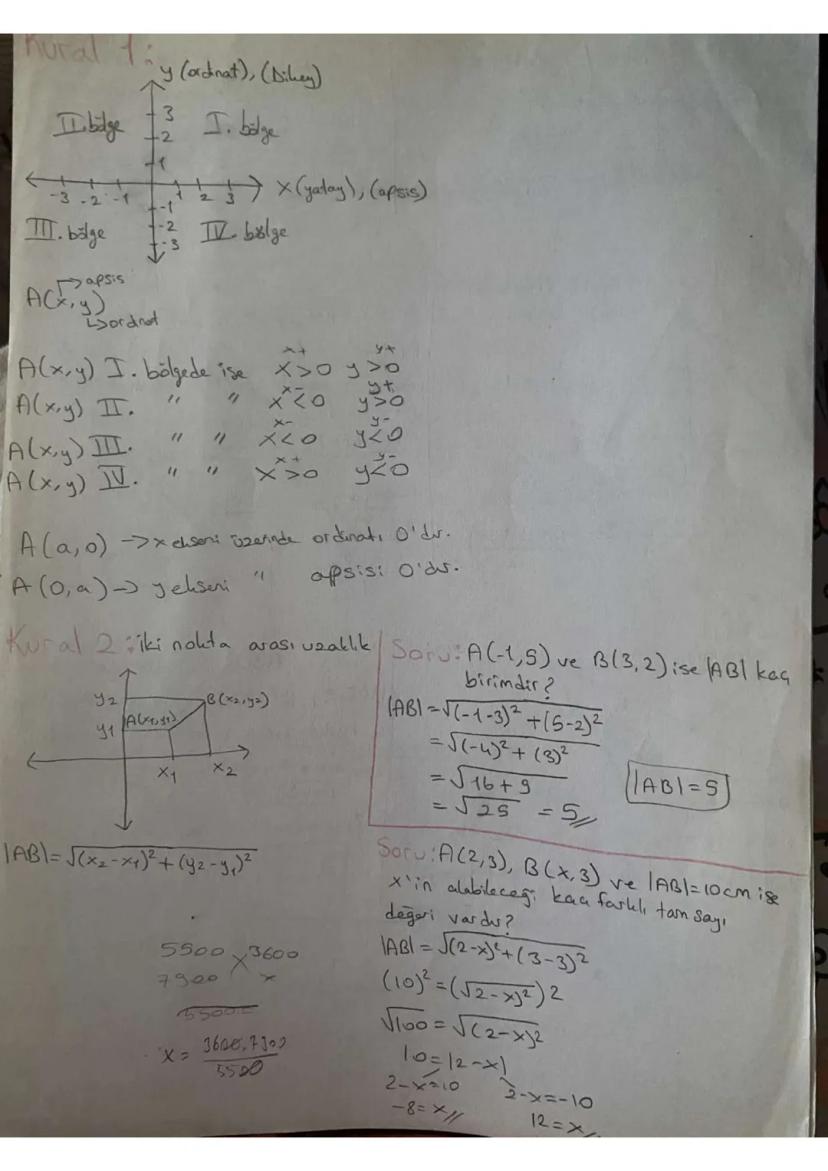 Kural 1:
y (ordinat), (Dikey)
II. bölge
I. bölge
3
2
1
-3 -2 -1 1 2 3 x (yatay), (apsis)
-1
-2
-3
III. bölge
IV. bölge
apsis
A(x,y)
ordinat
x+ y+
A(x,y) I. bölgede ise x>0 y>0
x- y+
A(x,y) II. " " x<0 y>0
x- y-
A(x,y) III. " " x<0 y<0
x+ y-
A(x,y) IV. " " x>0 y<0
A(a,0) -> x ekseni üzerinde ordinatı 0'dır.
A(0,a) -> y ekseni " apsisi 0'dır.
Kural 2: iki nokta arası uzaklık
y2
B(x2,y2)
y1
A(x1,y1)
x1 x2
|AB|=√(x2-x1)²+(y2-y1)²
5500 3600
7900 x
5500
x= 3600.7900
5500
Soru: A(-1,5) ve B(3,2) ise |AB| kaç
birimdir?
|AB|=√(-1-3)²+(5-2)²
=√(-4)²+(3)²
=√16+9
=√25 =5
|AB|=5
Soru: A(2,3), B(x,3) ve |AB|=10cm ise
x'in alabileceği kaç farklı tam sayı
değeri vardır?
|AB|=√(2-x)²+(3-3)²
(10)²=(√2-x)²)2
√100=√(2-x)²
10=|2-x|
2-x=10 2-x=-10
-8=x 12=x